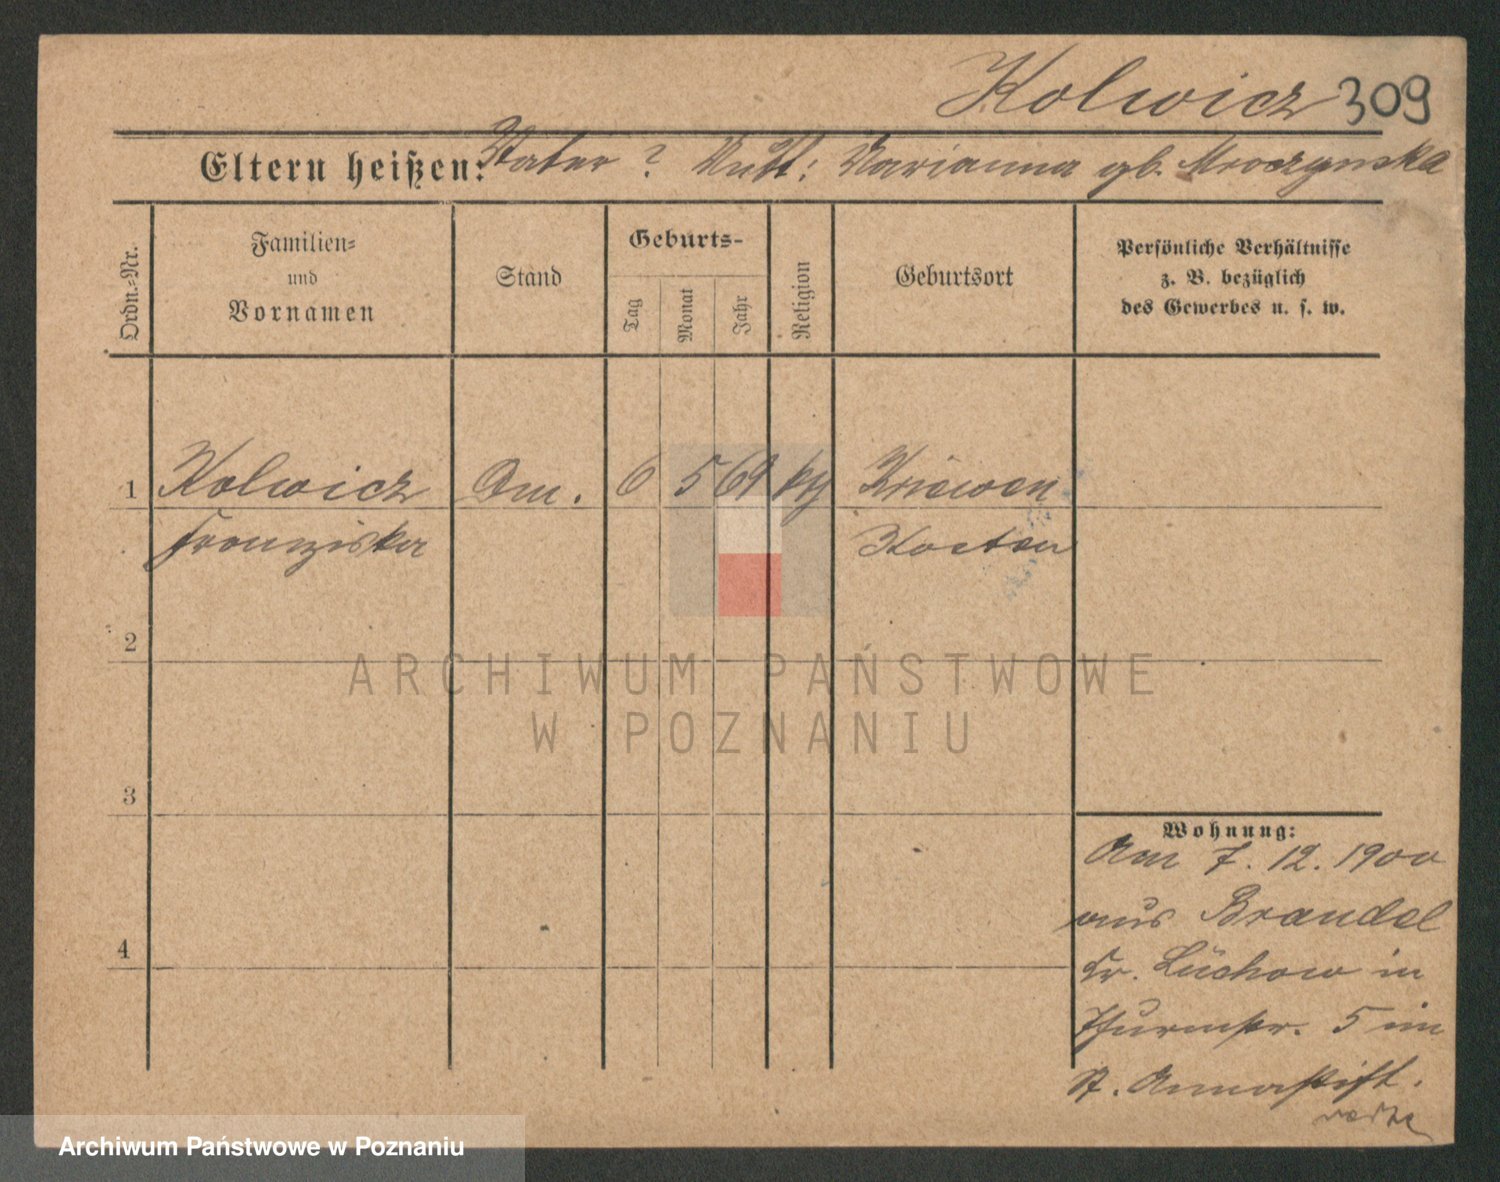 Kolwicz 309
Eltern heißen: Vater ? Mutt: Marianna gb. Mroczynska
Ordn.-Nr.
Familien-
und
Vornamen
Stand
Geburts-
Tag
Monat
Jahr
Religion
Geburtsort
Persönliche Verhältnisse
z. B. bezüglich
des Gewerbes u. s. w.
1 Kolwicz 6 5 69 Kriewen
Franziska Kosten
2
3
4
Wohnung:
Am 7. 12. 1900
aus Brandel
Kr. Lüchow in
Thurmstr. 5 im
St. Annastift.
ARCHIWUM PAŃSTWOWE
W POZNANIU
Archiwum Państwowe w Poznaniu